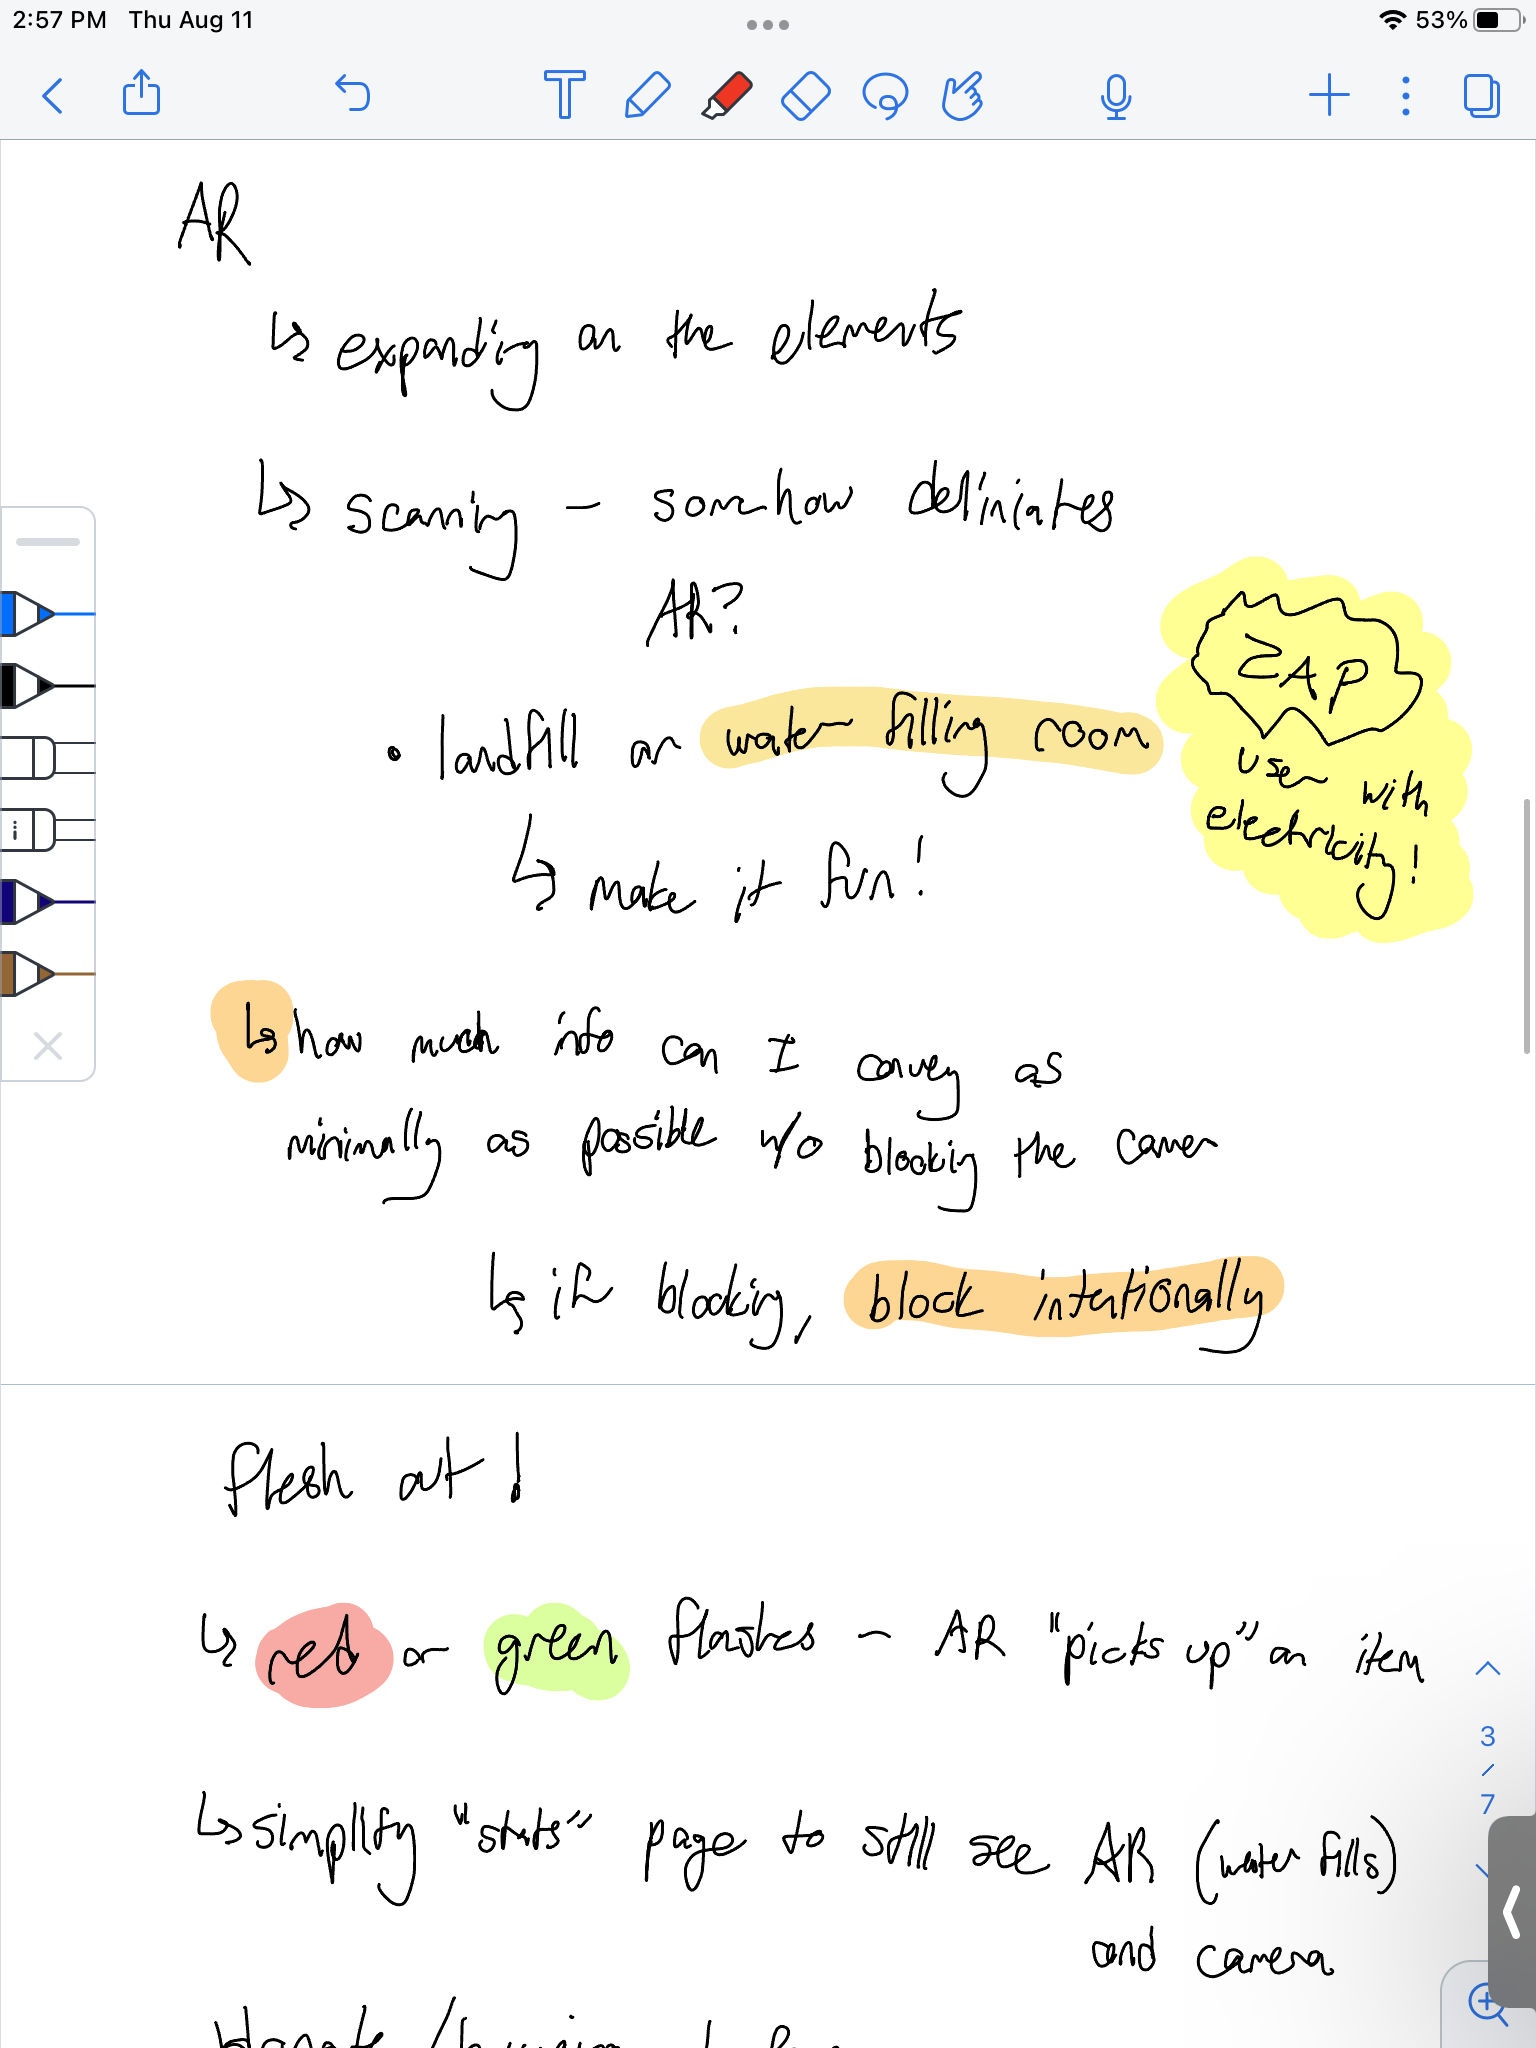 2:57 PM Thu Aug 11
53%
AR
↳ expanding on the elements
↳ scanning – somehow deliniates
AR?
• landfill or water filling room
ZAP
user with
electricity!
↳ make it fun!
↳ how much info can I convey as
minimally as possible w/o blocking the camera
↳ if blocking, block intentionally
flesh out!
↳ red or green flashes – AR "picks up" on item
3
/
7
↳ simplify "stats" page to still see AR (water fills)
and camera